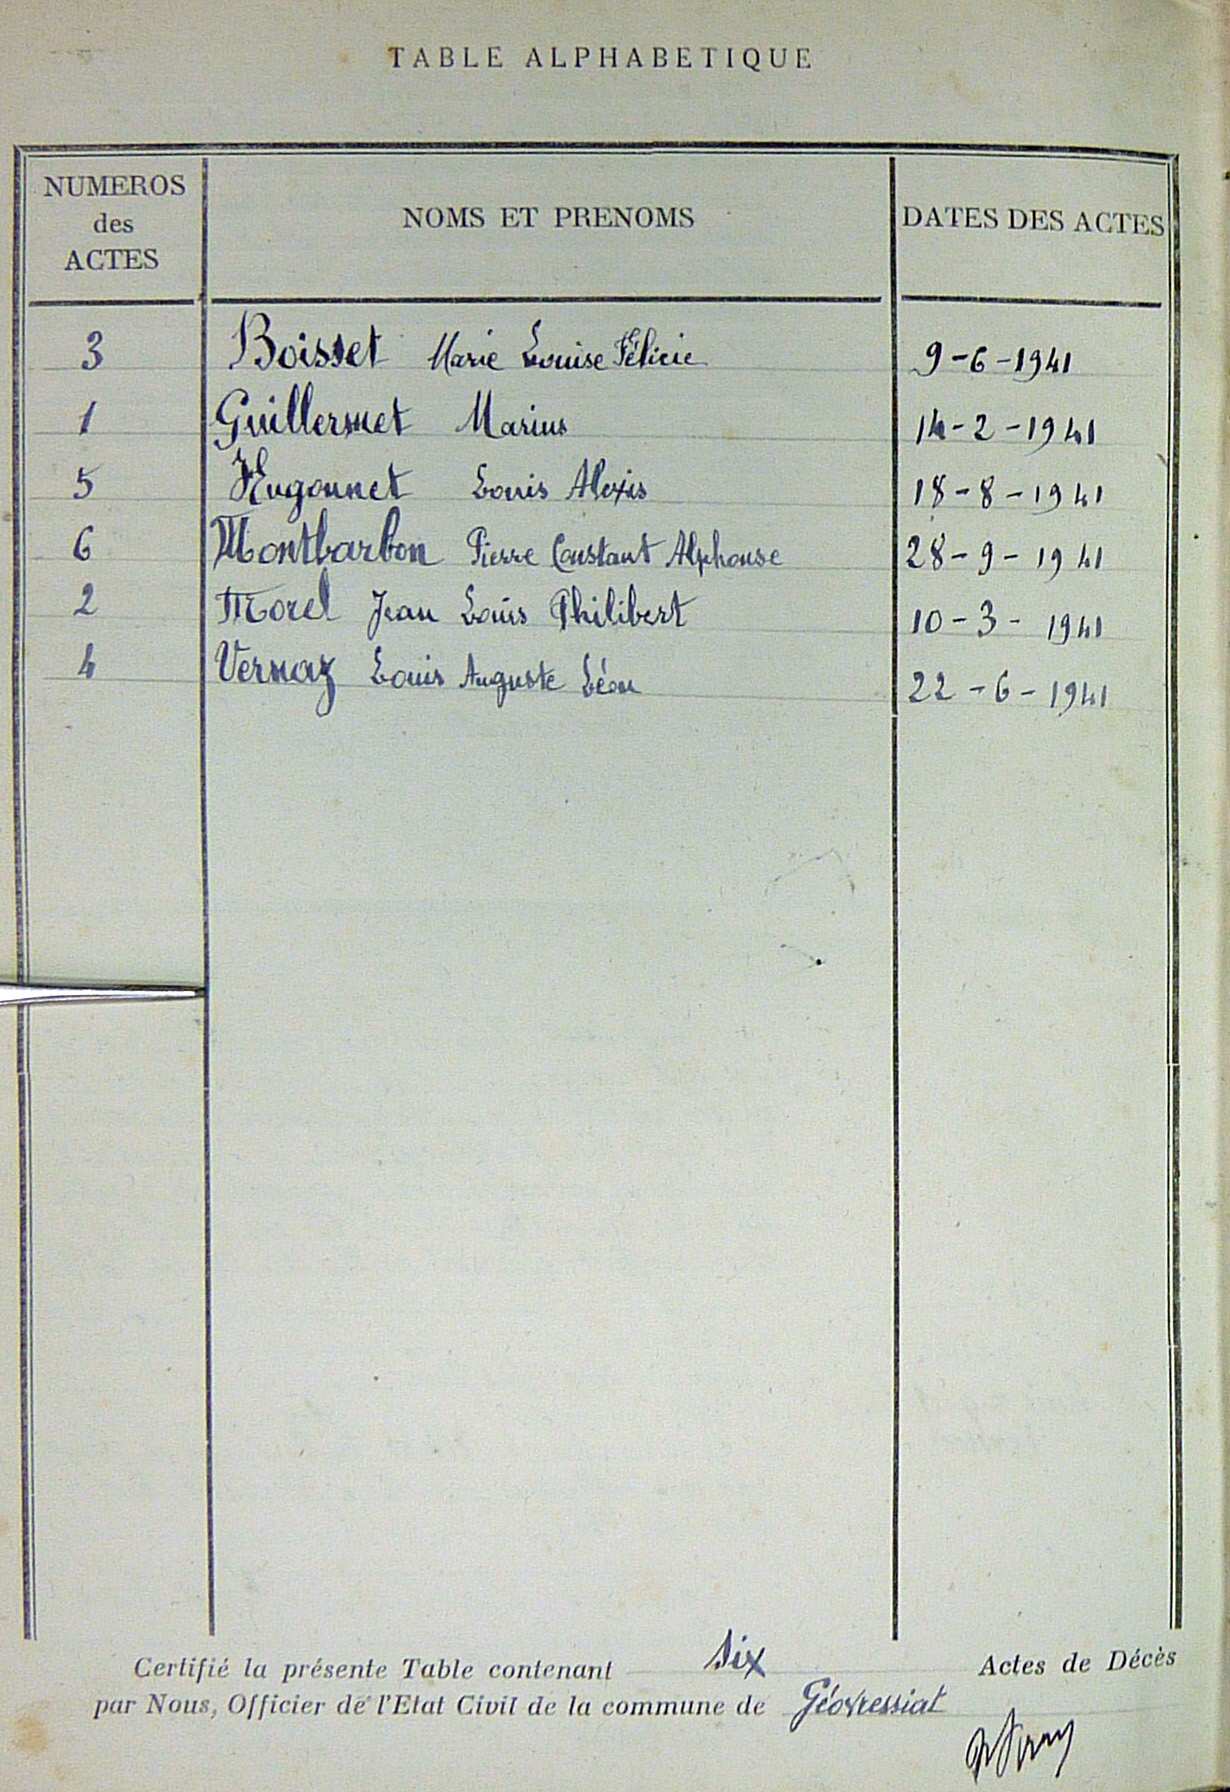 TABLE ALPHABETIQUE
NUMEROS des ACTES NOMS ET PRENOMS DATES DES ACTES
3 Boisset Marie Louise Félicie 9-6-1941
1 Guillermet Marius 14-2-1941
5 Hugonnet Louis Alexis 18-8-1941
6 Montbarbon Pierre Constant Alphonse 28-9-1941
2 Morel Jean Louis Philibert 10-3-1941
4 Vernaz Louis Auguste Léon 22-6-1941
Certifié la présente Table contenant six Actes de Décès
par Nous, Officier de l'Etat Civil de la commune de Géovressiat